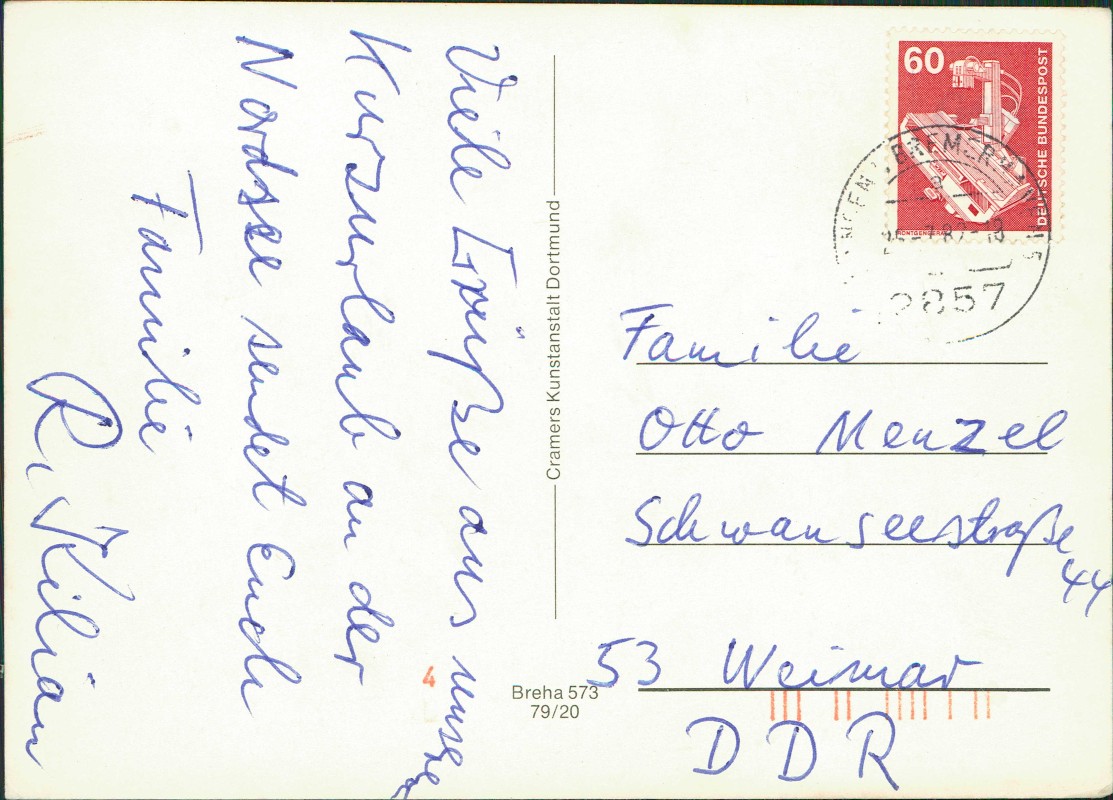 Viele Grüße aus unserem
Kurzurlaub an der
Nordsee sendet Euch
Familie
R. Kilian
Cramers Kunstanstalt Dortmund
Breha 573
79/20
4
60
DEUTSCHE BUNDESPOST
2857
Familie
Otto Menzel
Schwanseestraße
44
53 Weimar
DDR